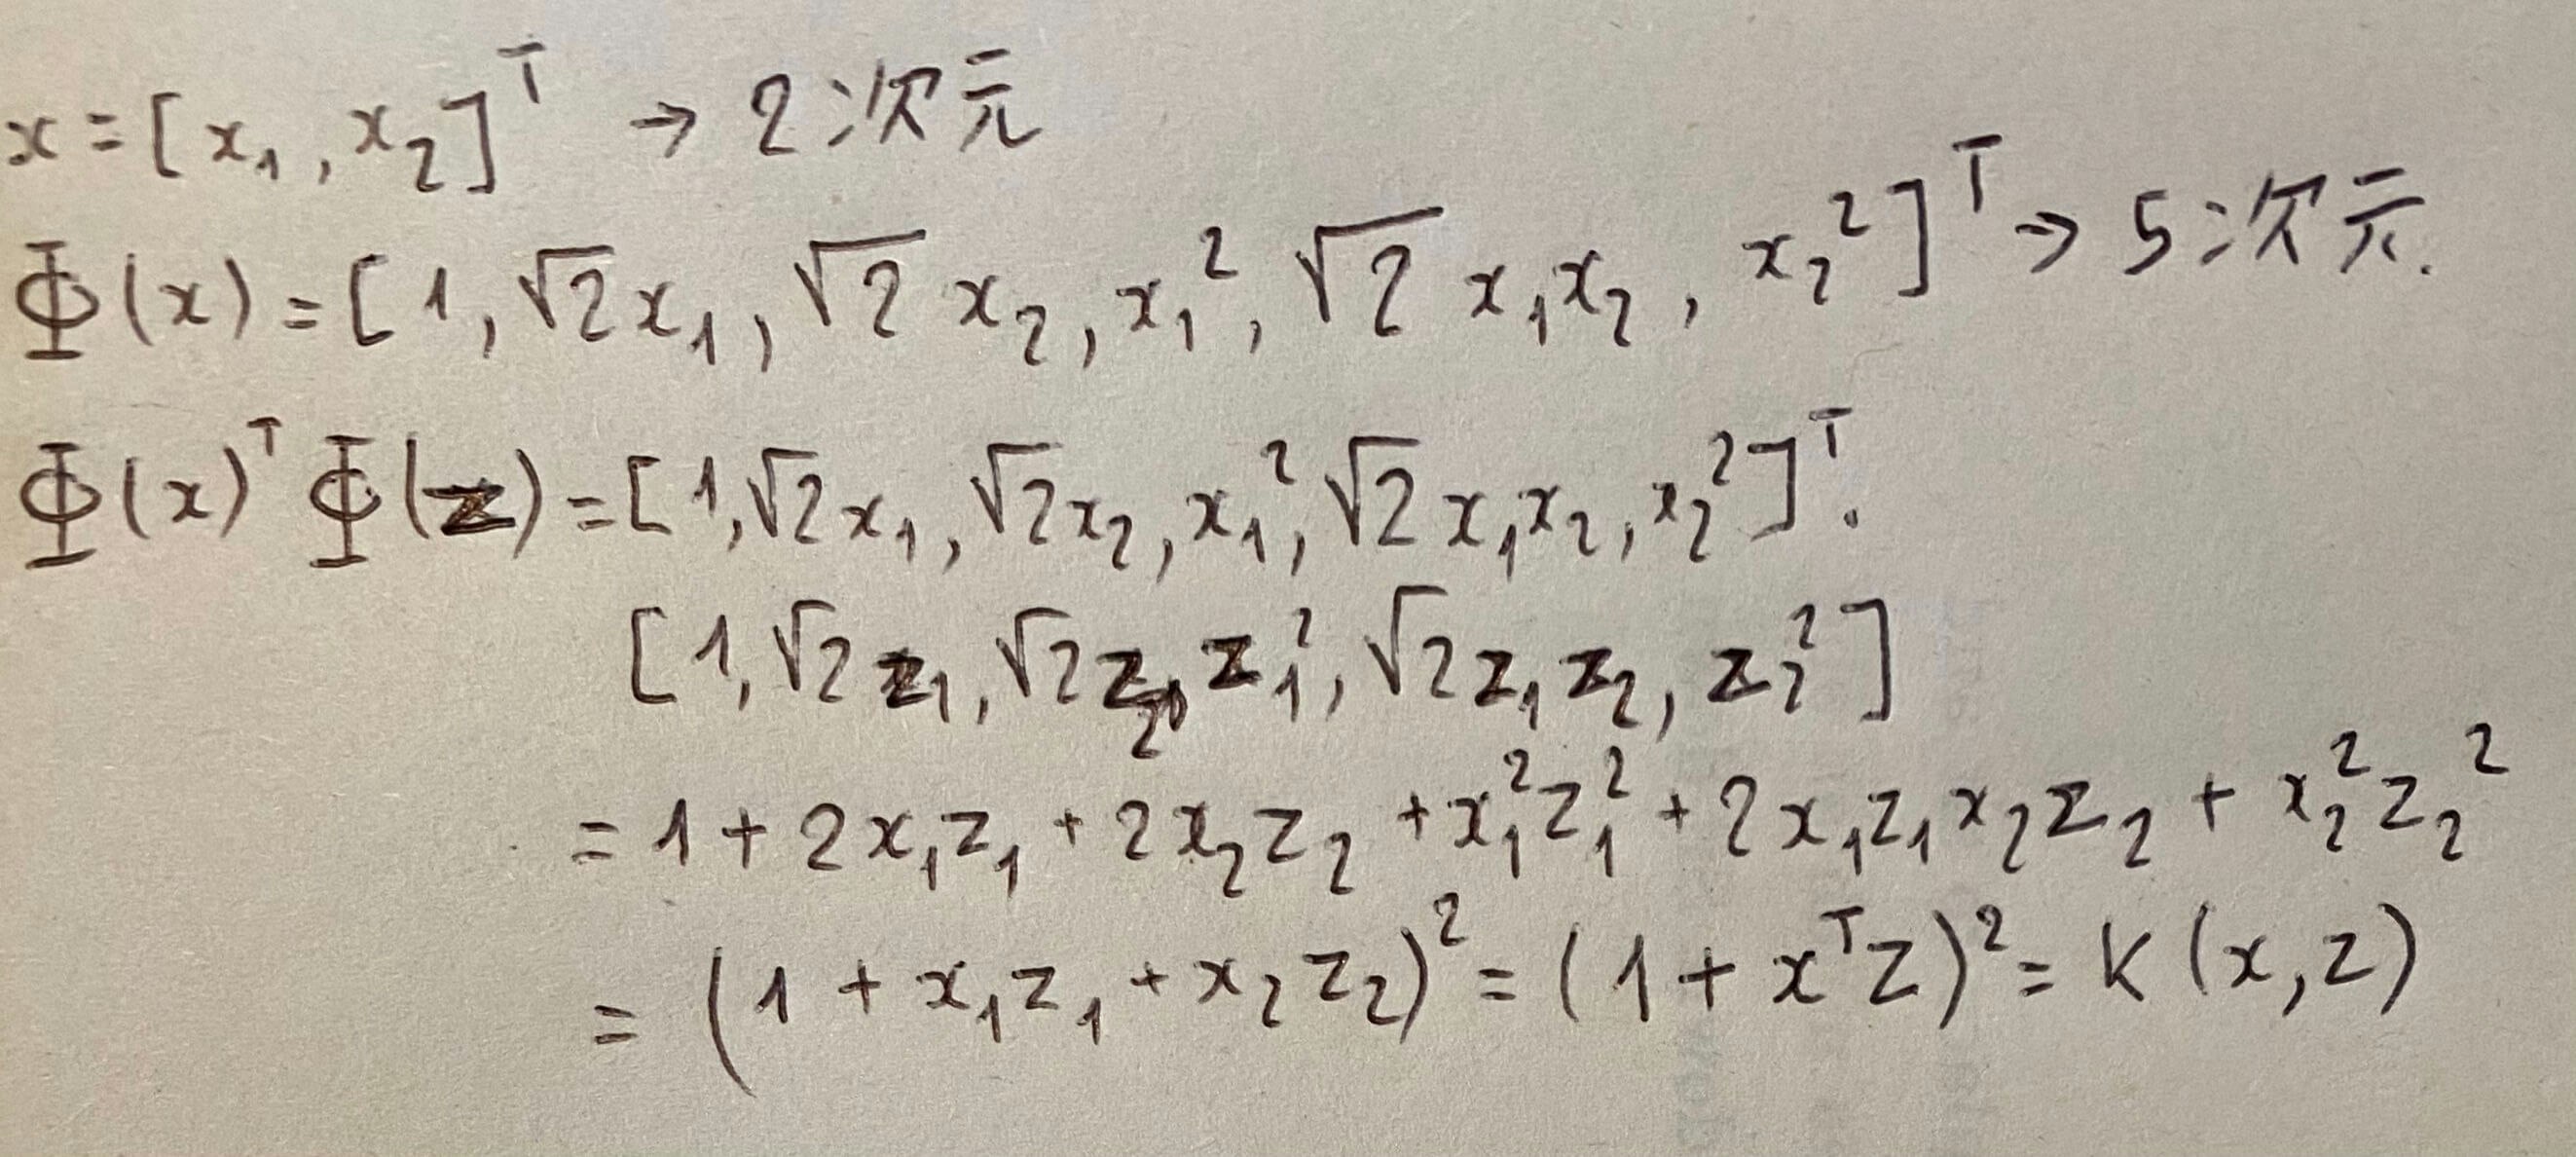 x = [x₁, x₂]ᵀ → 2次元
Φ(x) = [1, √2x₁, √2 x₂, x₁², √2 x₁x₂, x₂²]ᵀ → 5次元.
Φ(x)ᵀ Φ(z) = [1, √2x₁, √2x₂, x₁², √2x₁x₂, x₂²]ᵀ.
[1, √2z₁, √2z₂, z₁², √2z₁z₂, z₂²]
= 1 + 2x₁z₁ + 2x₂z₂ + x₁²z₁² + 2x₁z₁x₂z₂ + x₂²z₂²
= (1 + x₁z₁ + x₂z₂)² = (1 + xᵀz)² = K(x, z)